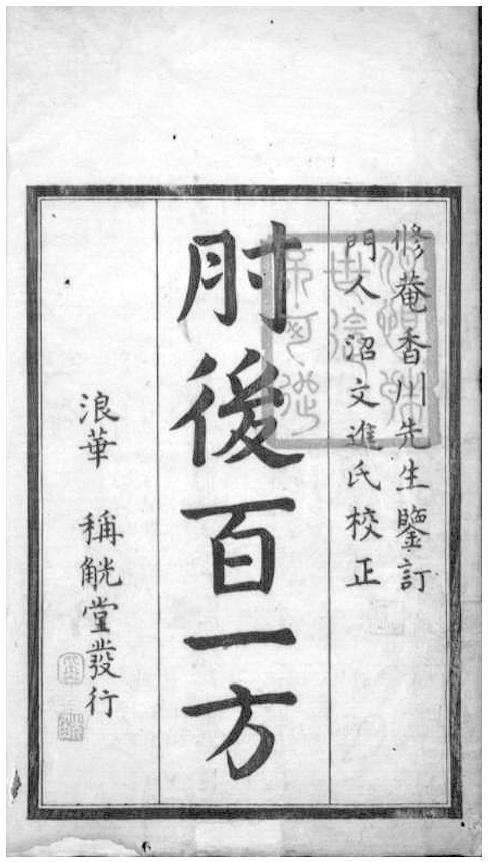 修菴香川先生鑒訂
門人沼文進氏校正
肘後百一方
浪華 稱觥堂發行